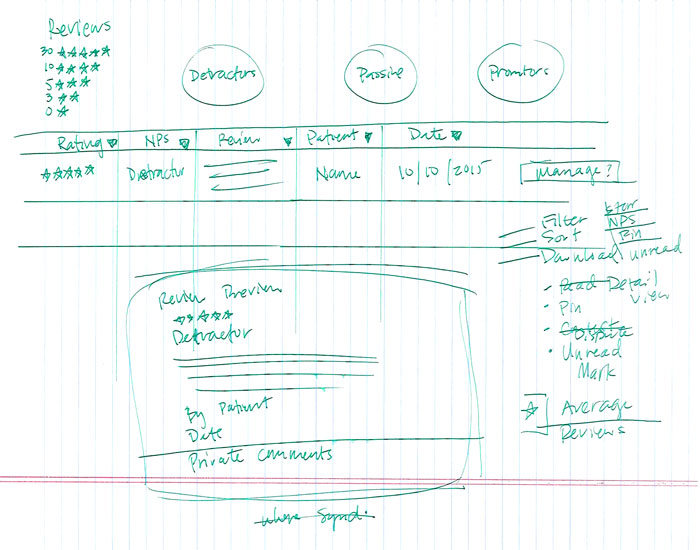 Reviews
30 ☆☆☆☆☆
10 ☆☆☆☆
5 ☆☆☆
3 ☆☆
0 ☆
Detractors
Passive
Promotors
Rating ▼ NPS ▼ Review ▼ Patient ▼ Date ▼
☆☆☆☆☆ Detractor Name 10/10/2015 Manage?
Filter Star
NPS
Sort Pin
Download Unread
- Read Detail View
• Pin
• Dispute
• Unread Mark
Review Preview
☆☆☆☆☆
Detractor
By Patient
Date
Private comments
☆ Average
Reviews